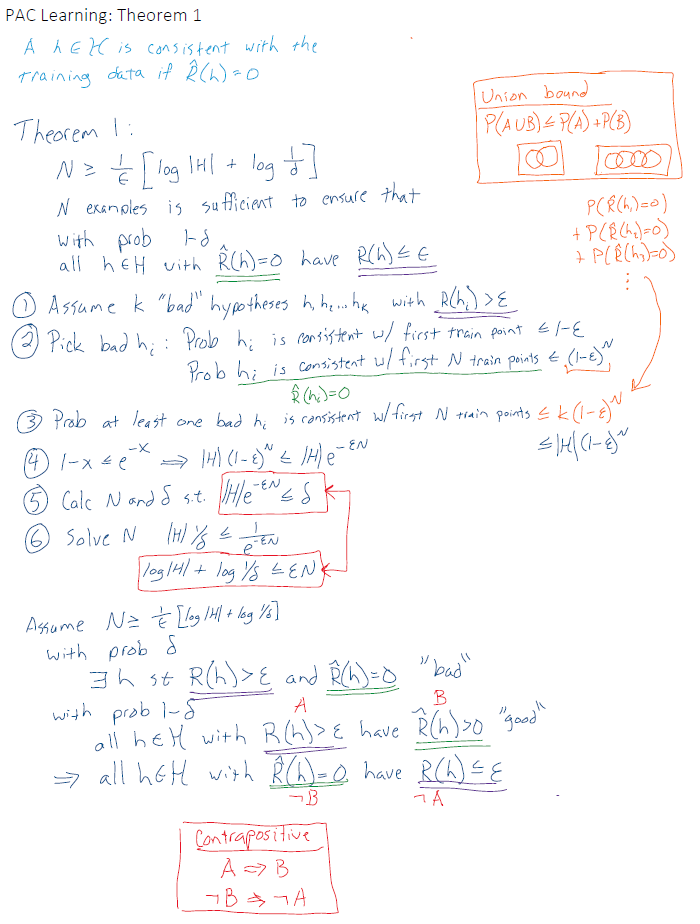 PAC Learning: Theorem 1
A h ∈ ℋ is consistent with the
training data if R̂(h) = 0
Union bound
P(A∪B) ≤ P(A) + P(B)
Theorem 1:
N ≥ 1/ε [log |H| + log 1/δ]
N examples is sufficient to ensure that
with prob 1-δ
all h∈H with R̂(h)=0 have R(h) ≤ ε
P(R̂(h₁)=0)
+ P(R̂(h₂)=0)
+ P(R̂(h₃)=0)
⋮
① Assume k "bad" hypotheses h₁ h₂ ... hₖ with R(hᵢ) > ε
② Pick bad hᵢ: Prob hᵢ is consistent w/ first train point ≤ 1-ε
Prob hᵢ is consistent w/ first N train points ≤ (1-ε)ᴺ
R̂(hᵢ)=0
③ Prob at least one bad hᵢ is consistent w/ first N train points ≤ k(1-ε)ᴺ
≤ |H|(1-ε)ᴺ
④ 1-x ≤ e^-x ⇒ |H|(1-ε)ᴺ ≤ |H|e^-εN
⑤ Calc N and δ s.t. |H|e^-εN ≤ δ
⑥ Solve N |H| 1/δ ≤ 1/e^-εN
log|H| + log 1/δ ≤ εN
Assume N ≥ 1/ε [log |H| + log 1/δ]
with prob δ
∃ h st R(h) > ε and R̂(h)=0 "bad"
with prob 1-δ
A B
all h∈H with R(h) > ε have R̂(h) > 0 "good"
⇒ all h∈H with R̂(h)=0 have R(h) ≤ ε
¬B ¬A
Contrapositive
A ⇒ B
¬B ⇒ ¬A